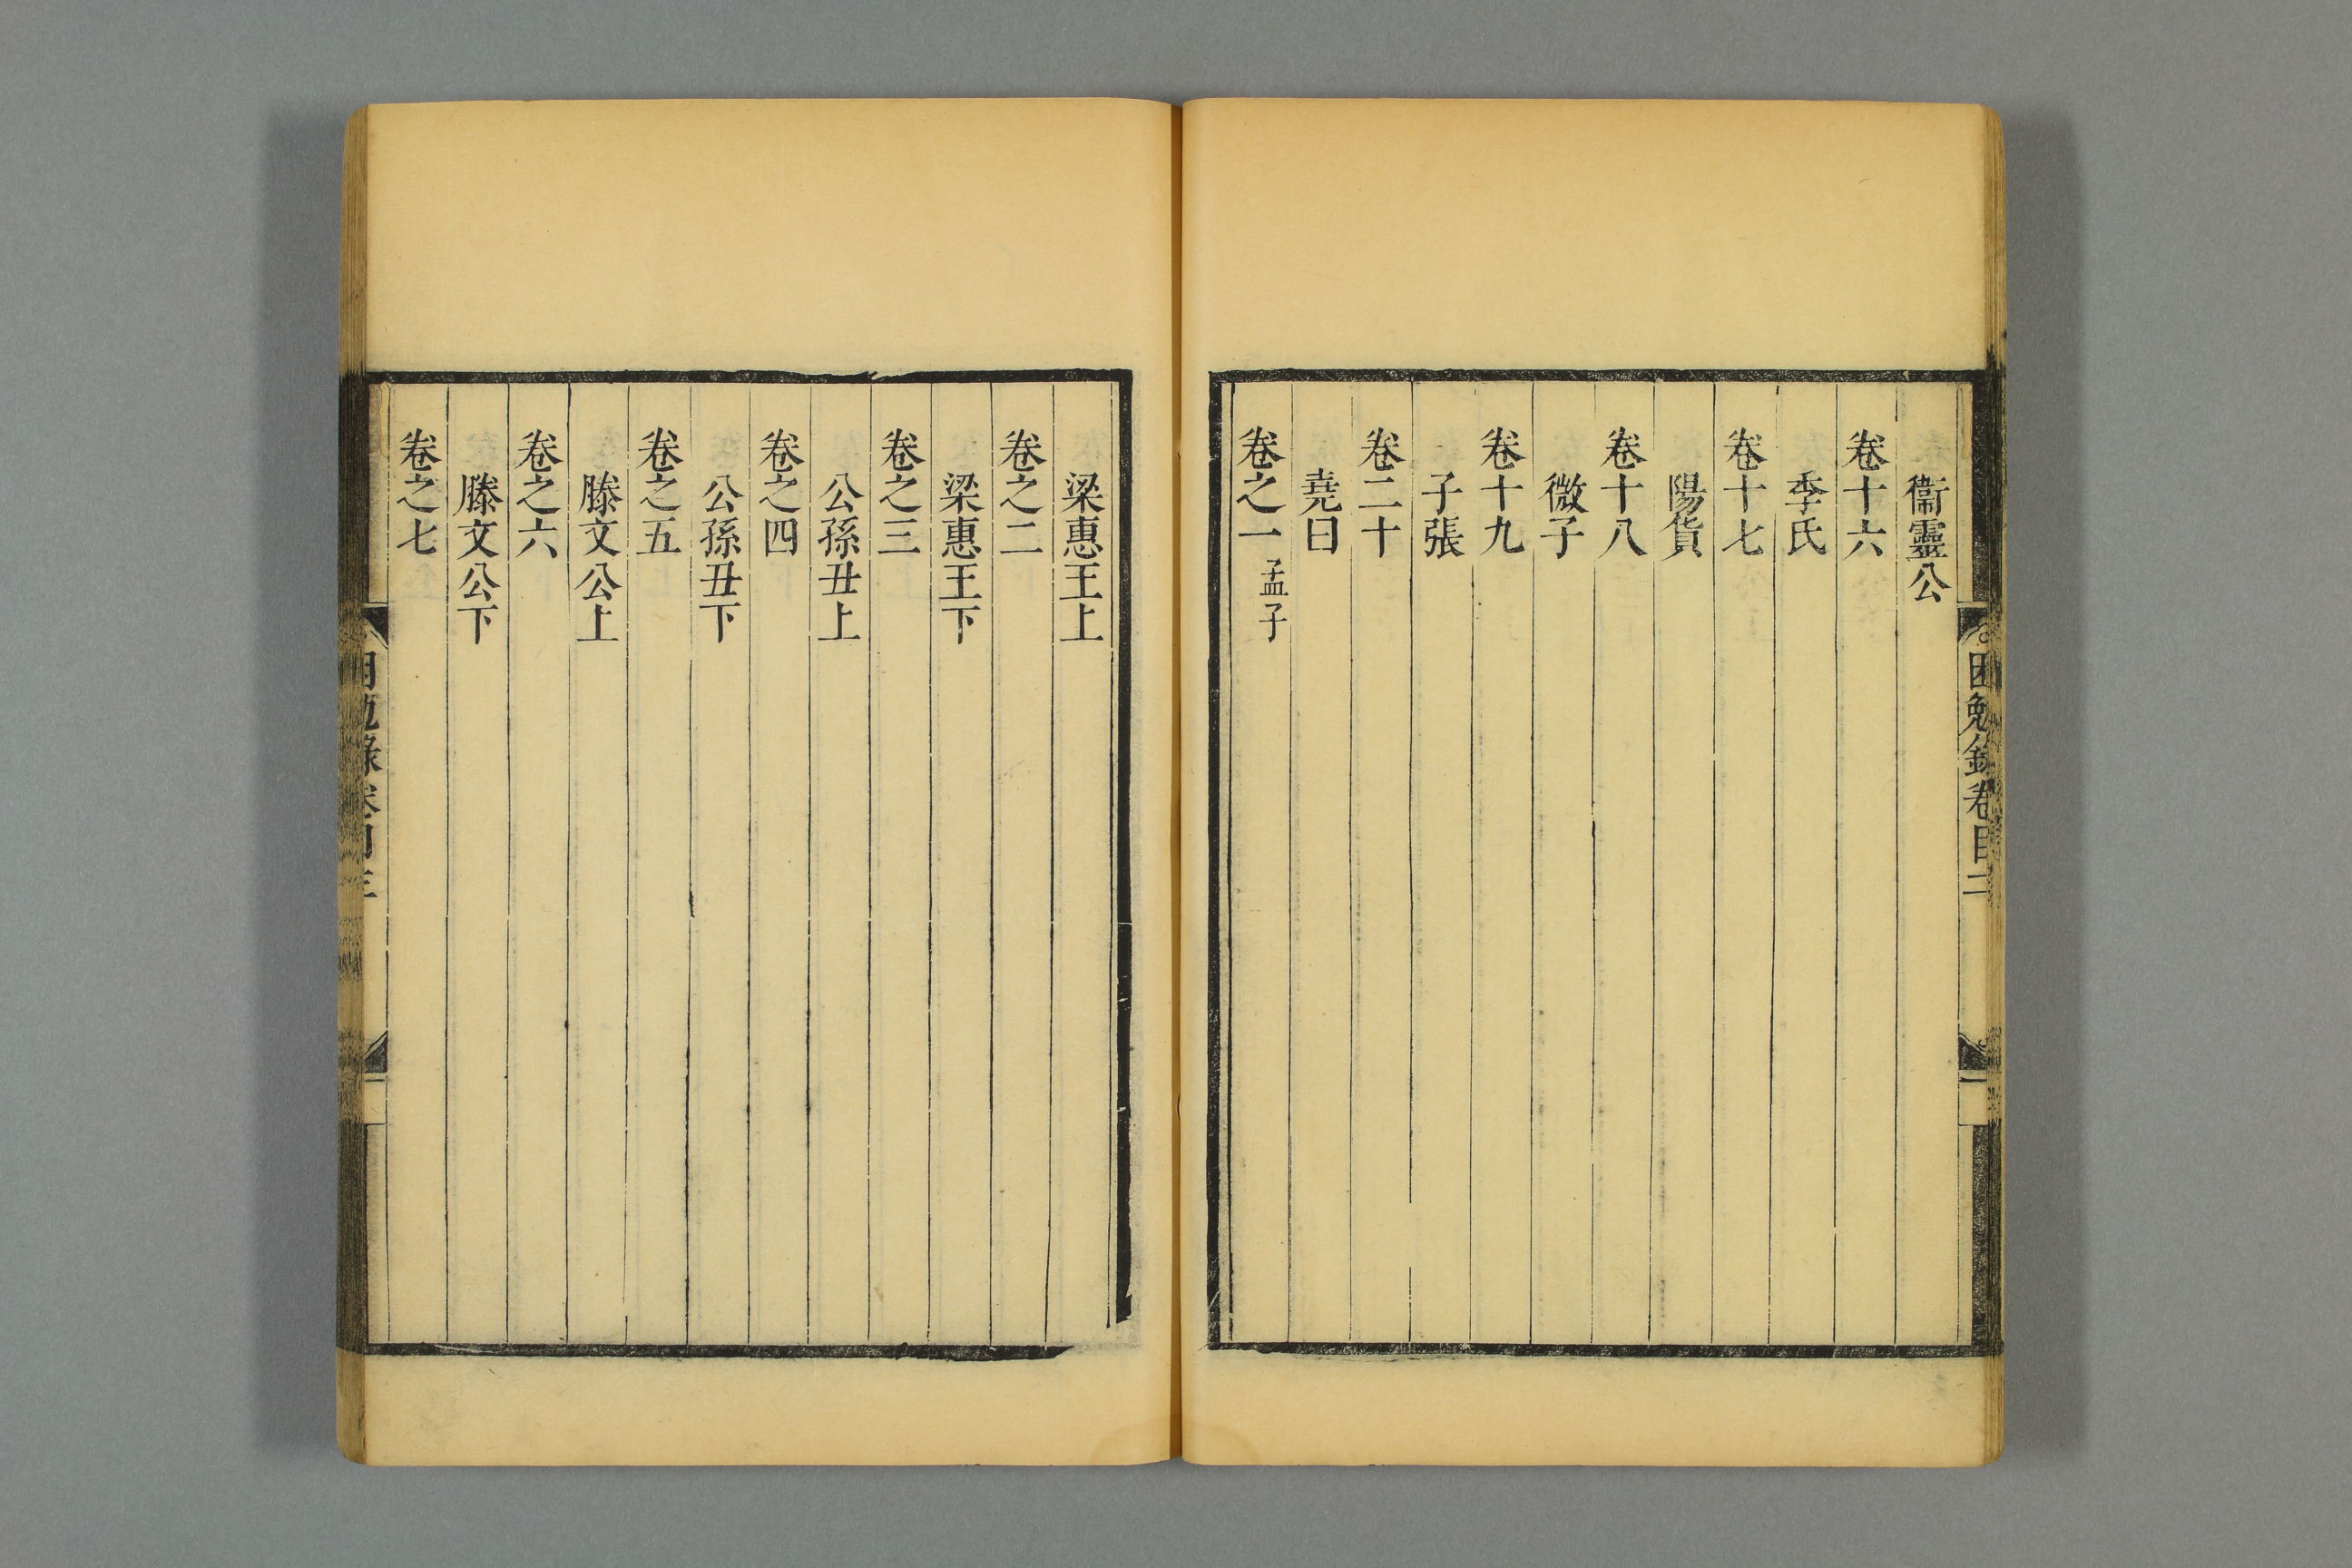 困勉錄卷目二
衞靈公
卷十六
季氏
卷十七
陽貨
卷十八
微子
卷十九
子張
卷二十
堯曰
卷之一 孟子
梁惠王上
卷之二
梁惠王下
卷之三
公孫丑上
卷之四
公孫丑下
卷之五
滕文公上
卷之六
滕文公下
卷之七